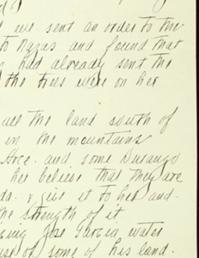 we sent an order to the
to Nazas and found that
had already sent the
the trees were on her
all the land south of
in the mountains
Arce. and some Durango
her believe that they are
da. & give it to her and
the strength of it
Jose Garcia water
use of some of his land.